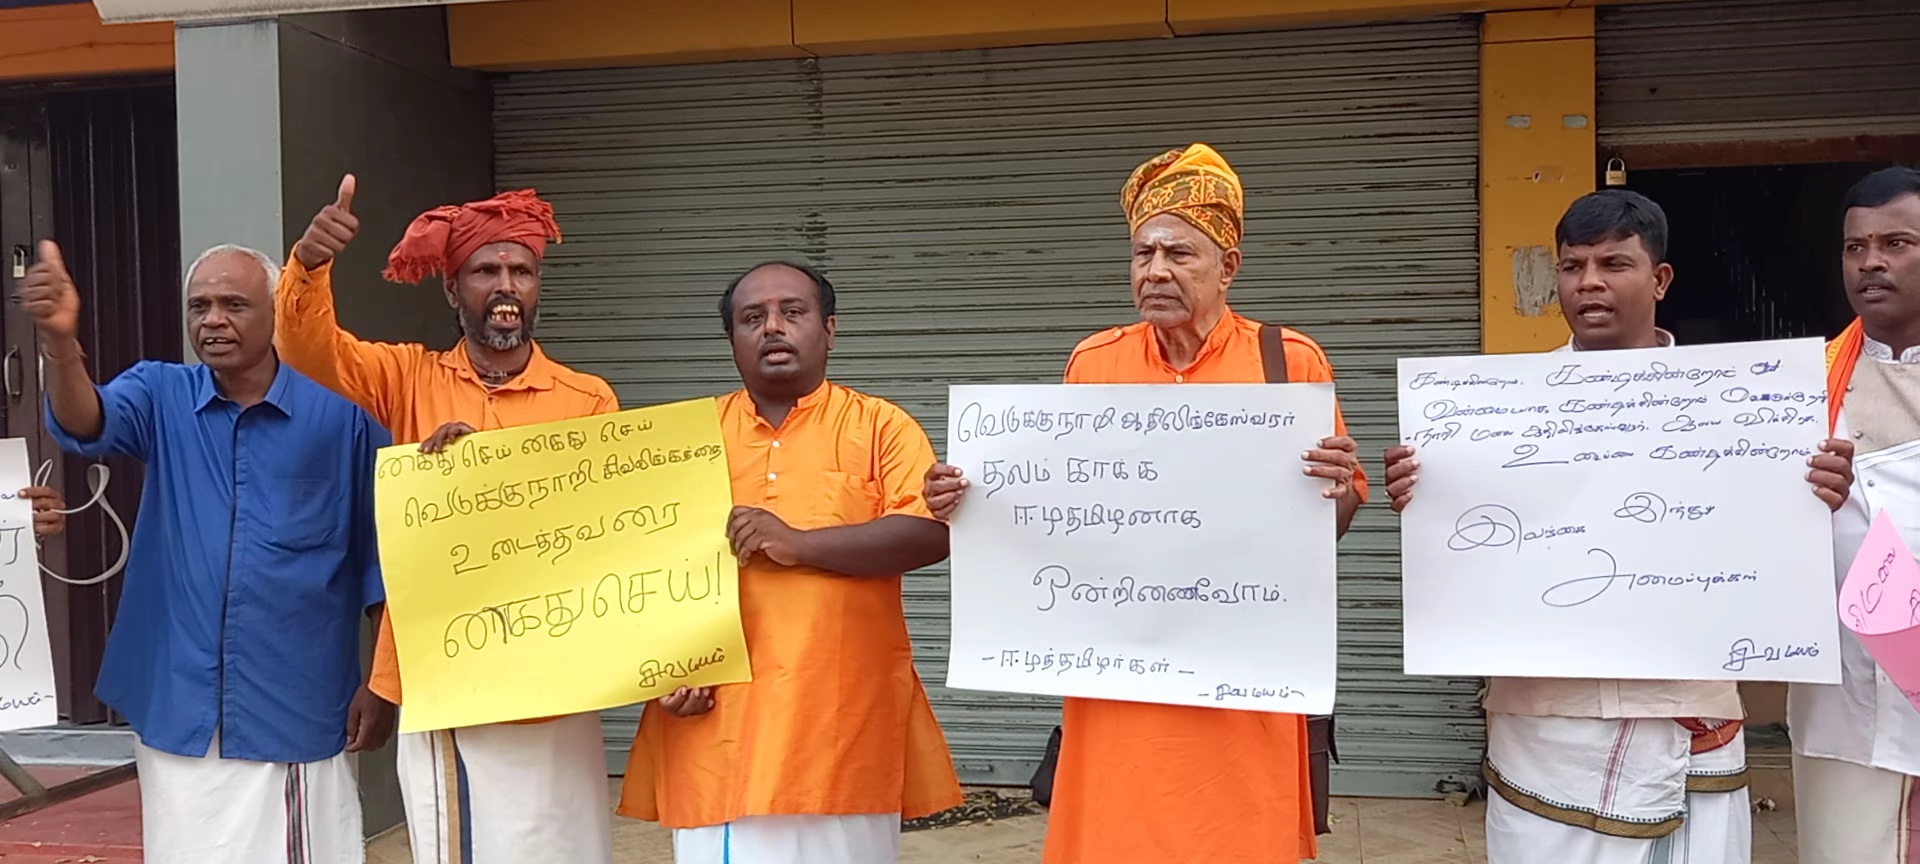 கைது செய் கைது செய்
வெடுக்குநாறி சிவலிங்கத்தை
உடைத்தவரை
கைது செய்!
சிவமயம்
வெடுக்குநாறி ஆதிலிங்கேஸ்வரர்
தலம் காக்க
ஈழதமிழனாக
ஒன்றிணைவோம்.
- ஈழத்தமிழர்கள் -
- சிவமயம் -
கண்டிக்கின்றோம். கண்டிக்கின்றோம்
வன்மையாக கண்டிக்கின்றோம் வெடுக்குநாறி
மலை ஆதிலிங்கேஸ்வரர். ஆலய விக்கிரக
உடைப்பை கண்டிக்கின்றோம்
இலங்கை இந்து
அமைப்புக்கள்
சிவமயம்